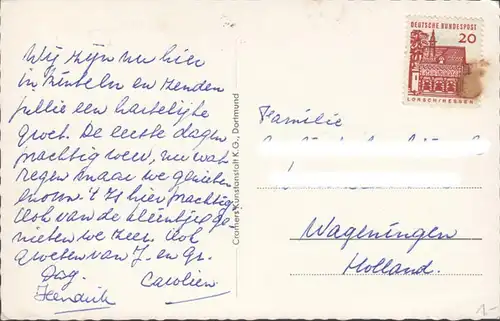 Wij zijn nu hier
in en zenden
jullie een hartelijke
groet. De eerste dagen
prachtig weer, nu wat
regen maar we genieten
enorm. 't Is hier prachtig
Ook van de kleintjes ge-
nieten we zeer. Ook
groeten van J. en Gr.
Dag.
Hendrik Carolien
Cramers Kunstanstalt K.G., Dortmund
DEUTSCHE BUNDESPOST
20
LORSCH/HESSEN
Familie
Wageningen
Holland.